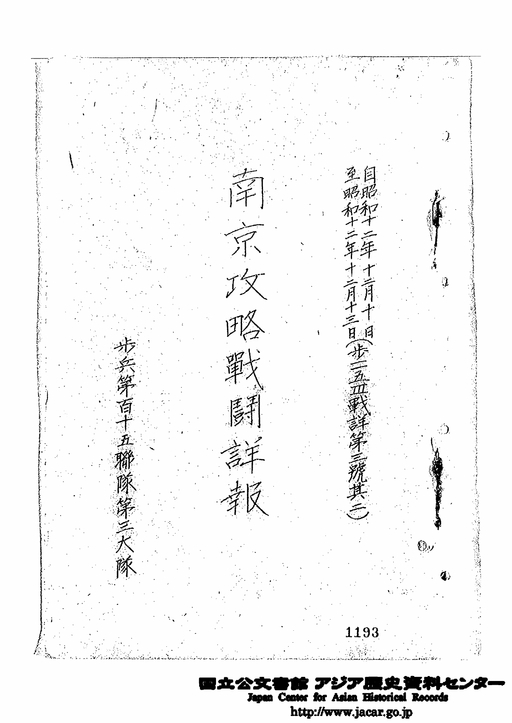 自昭和十二年十二月十日
至昭和十二年十二月十三日(歩一一五Ⅲ戰詳第三號其二)
南京攻略戰鬪詳報
歩兵第百十五聯隊第三大隊
1193
国立公文書館 アジア歴史資料センター
Japan Center for Asian Historical Records
http://www.jacar.go.jp